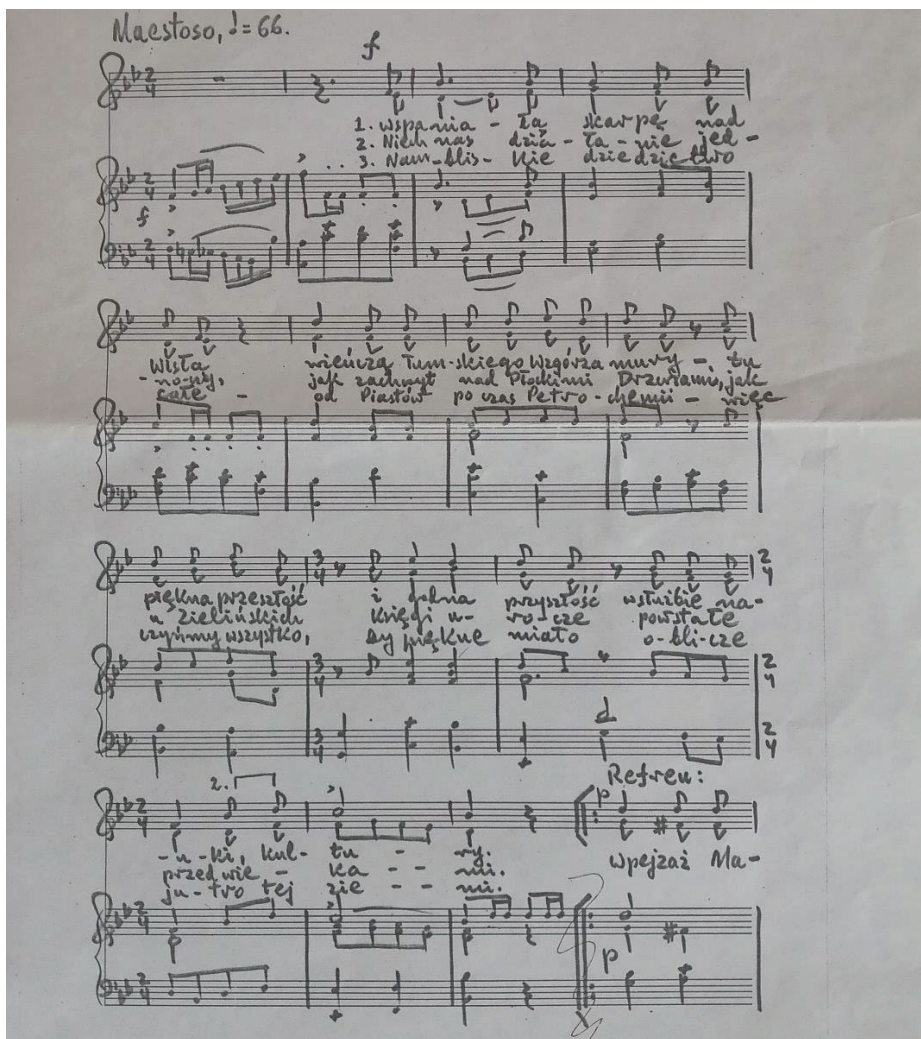 Maestoso, ♩= 66.
f
1. wspania - ła skarpę nad
2. Niech nas działa - nie jed -
3. Nam - blis - kie dziedzictwo
f
Wisła wieńczą Tum-skiego Wzgórza mury -, tu
-no-czy, jak zachwyt nad Płockimi Drzwiami, jak
całe - od Piastów po czas Petro-chemii - więc
piękna przeszłość i godna przyszłość wsłużbie na-
u Zielińskich księgi u- ro-cze powstałe
czyńmy wszystko, by piękne miało o-bli-cze
Refren:
2. p
-u-ki, kul- tu - ry. wpejzaż Ma-
przed wie - ka - - mi.
ju-tro tej zie - - mi.
p